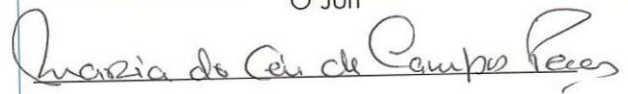 O Júri
Maria do Céu de Campos Peças